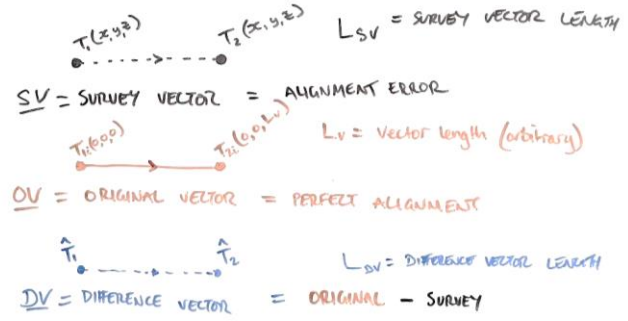 T₁(x,y,z) T₂(x,y,z) L_SV = SURVEY VECTOR LENGTH
SV = SURVEY VECTOR = ALIGNMENT ERROR
T₁ᵢ(0,0,0) T₂ᵢ(0,0,Lᵥ) Lᵥ = Vector length (arbitrary)
OV = ORIGINAL VECTOR = PERFECT ALIGNMENT
T̂₁ T̂₂ L_DV = DIFFERENCE VECTOR LENGTH
DV = DIFFERENCE VECTOR = ORIGINAL - SURVEY